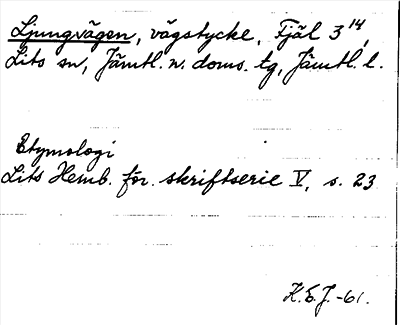 Ljungvägen, vägstycke, Fjäl 3¹⁴,
Lits sn, Jämtl. n. doms. tg, Jämtl. l.
Etymologi
Lits Hemb. för. skriftserie V, s. 23
K.E.J. -61.